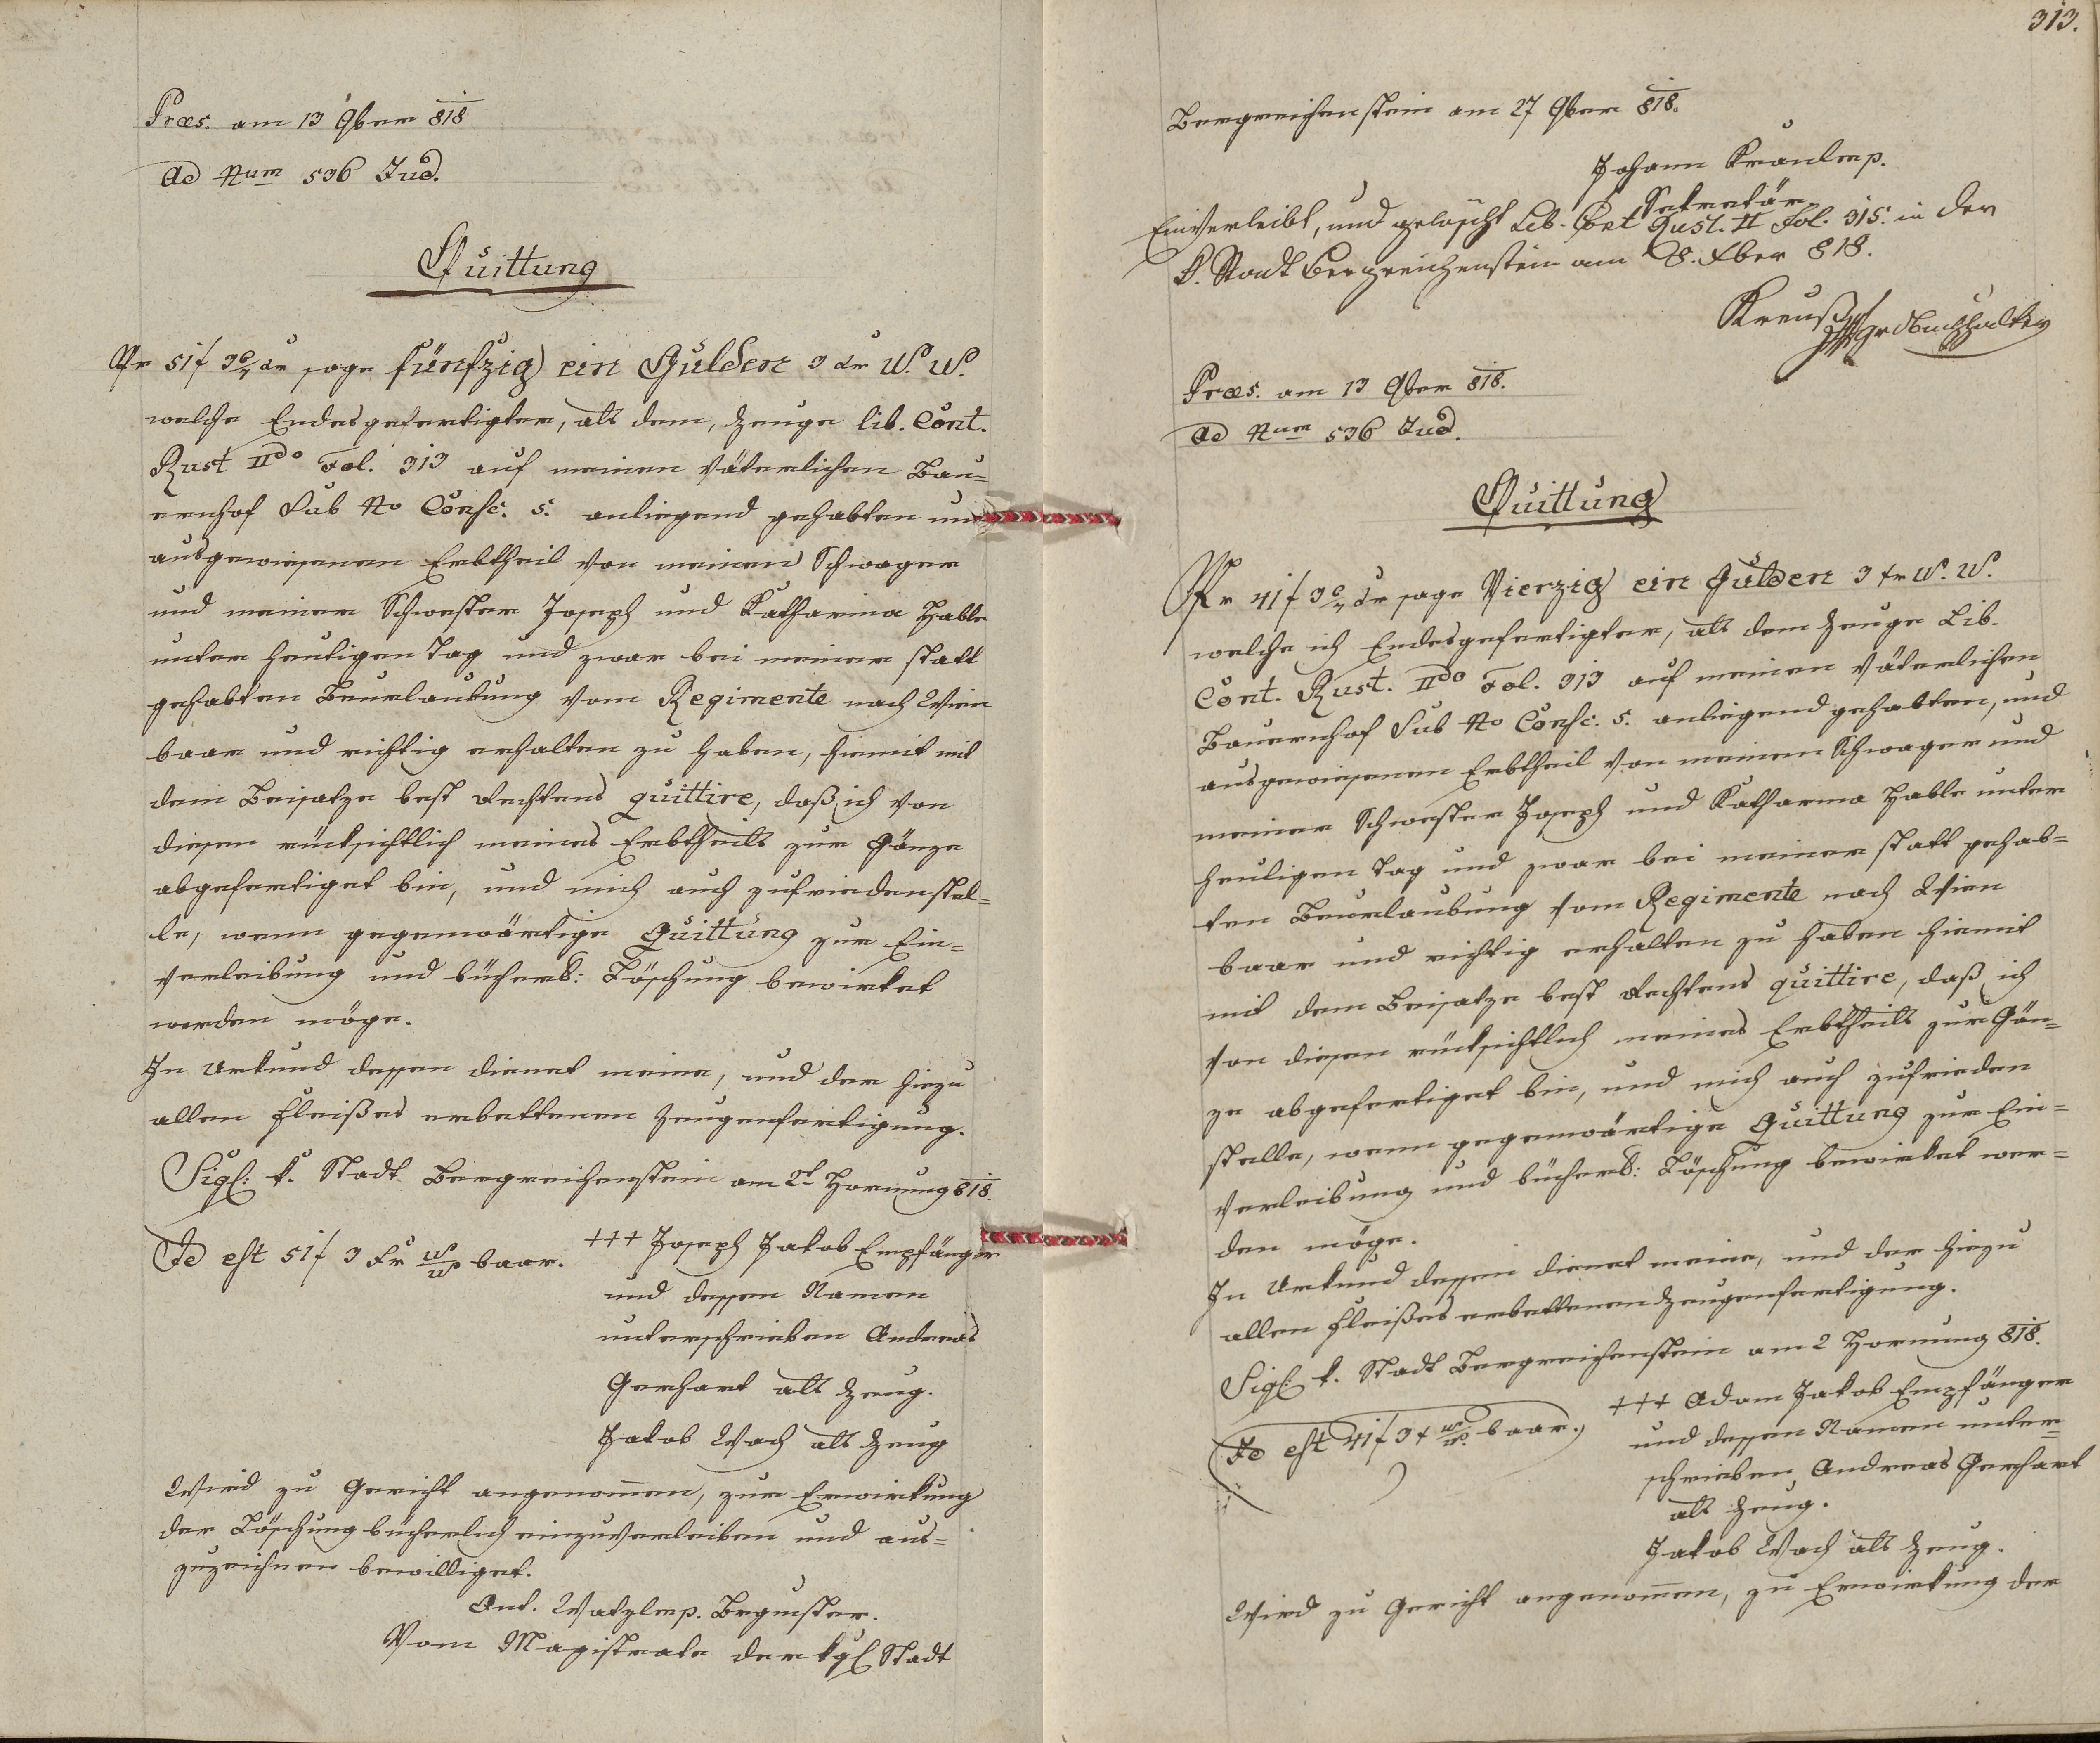 Præs. am 13 9ber 818
Ad Num 536 Jud.
Quittung
Pr 51 f 3 xr sage fünfzig ein Gulden 3 xr W. W.
welche Endesgefertigter, als dem, Zeuge lib. Cont.
Rust IIdo Fol. 313 auf meinen väterlichen Bau=
ernhof Sub No Consc. 5. anliegend gehabten und
ausgewiesenen Erbtheil von meinen Schwager
und meiner Schwester Joseph und Katharina Hable
unter heutigen Tag und zwar bei meiner statt
gehabten Beurlaubung vom Regimente nach Wien
baar und richtig erhalten zu haben, hiemit mit
dem Beisatze best Rechtens quittire, daß ich von
diesen rücksichtlich meines Erbtheils zur Gänze
abgefertiget bin, und mich auch zufriedenstel=
le, wenn gegenwärtige Quittung zur Ein=
verleibung und bücherl: Löschung bewirket
werden möge.
In Urkund dessen dienet meine, und der hiezu
allen Fleißes erbettenen Zeugenfertigung.
Sigl: k. Stadt Bergreichenstein am 2t Hornung 818.
Id est 51 f 3 Xr W W baar.
+++ Joseph Jakob Empfänger
und dessen Namen
unterschrieben Andreas
Gerhart als Zeug.
Jakob Wach als Zeug
Wird zu Gericht angenom̅en, zur Erwirkung
der Löschung bücherlich einzuverleiben und aus=
zuzeichnen bewilliget.
Ant. Watzl mp. Brgmster.
Vom Magistrate der kgl Stadt
313.
Bergreichenstein am 27 9ber 818.
Johann Kranl mp.
Sekretär
Einverleibt, und gelöscht Lib. Cont Rust. II Fol. 315. in der
K. Stadt Bergreichenstein am 8. Xber 818.
Kreuß
Præs. am 13 9ber 818.
Ad Num 536 Jud.
Quittung
Pr 41 f 3 xr sage Vierzig ein Gulden 3 xr W. W.
welche ich Endesgefertigter, als dem Zeuge Lib.
Cont. Rust. IIdo Fol. 313 auf meinen väterlichen
Bauernhof Sub No Consc. 5. anliegend gehabten, und
ausgewiesenen Erbtheil von meinem Schwager und
meiner Schwester Joseph und Katharina Hable unter
heutigen Tag und zwar bei meiner statt gehab=
ten Beurlaubung vom Regimente nach Wien
baar und richtig erhalten zu haben hiemit
mit dem Beisatze best Rechtens quittire, daß ich
von diesen rücksichtlich meines Erbtheils zur Gän=
ze abgefertiget bin, und mich auch zufrieden
stelle, wenn gegenwärtige Quittung zur Ein=
verleibung und bücherl: Löschung bewirket wer=
den möge.
In Urkund dessen dienet meine, und der hiezu
allen Fleißes erbettenen Zeugenfertigung.
Sigl: k. Stadt Bergreichenstein am 2 Hornung 818.
Id est 41 f 3 x W W. baar.
+++ Adam Jakob Empfänger
und dessen Namen unter=
schrieben, Andreas Gerhart
als Zeug.
Jakob Wach als Zeug.
Wird zu Gericht angenom̅en, zu Erwirkung der